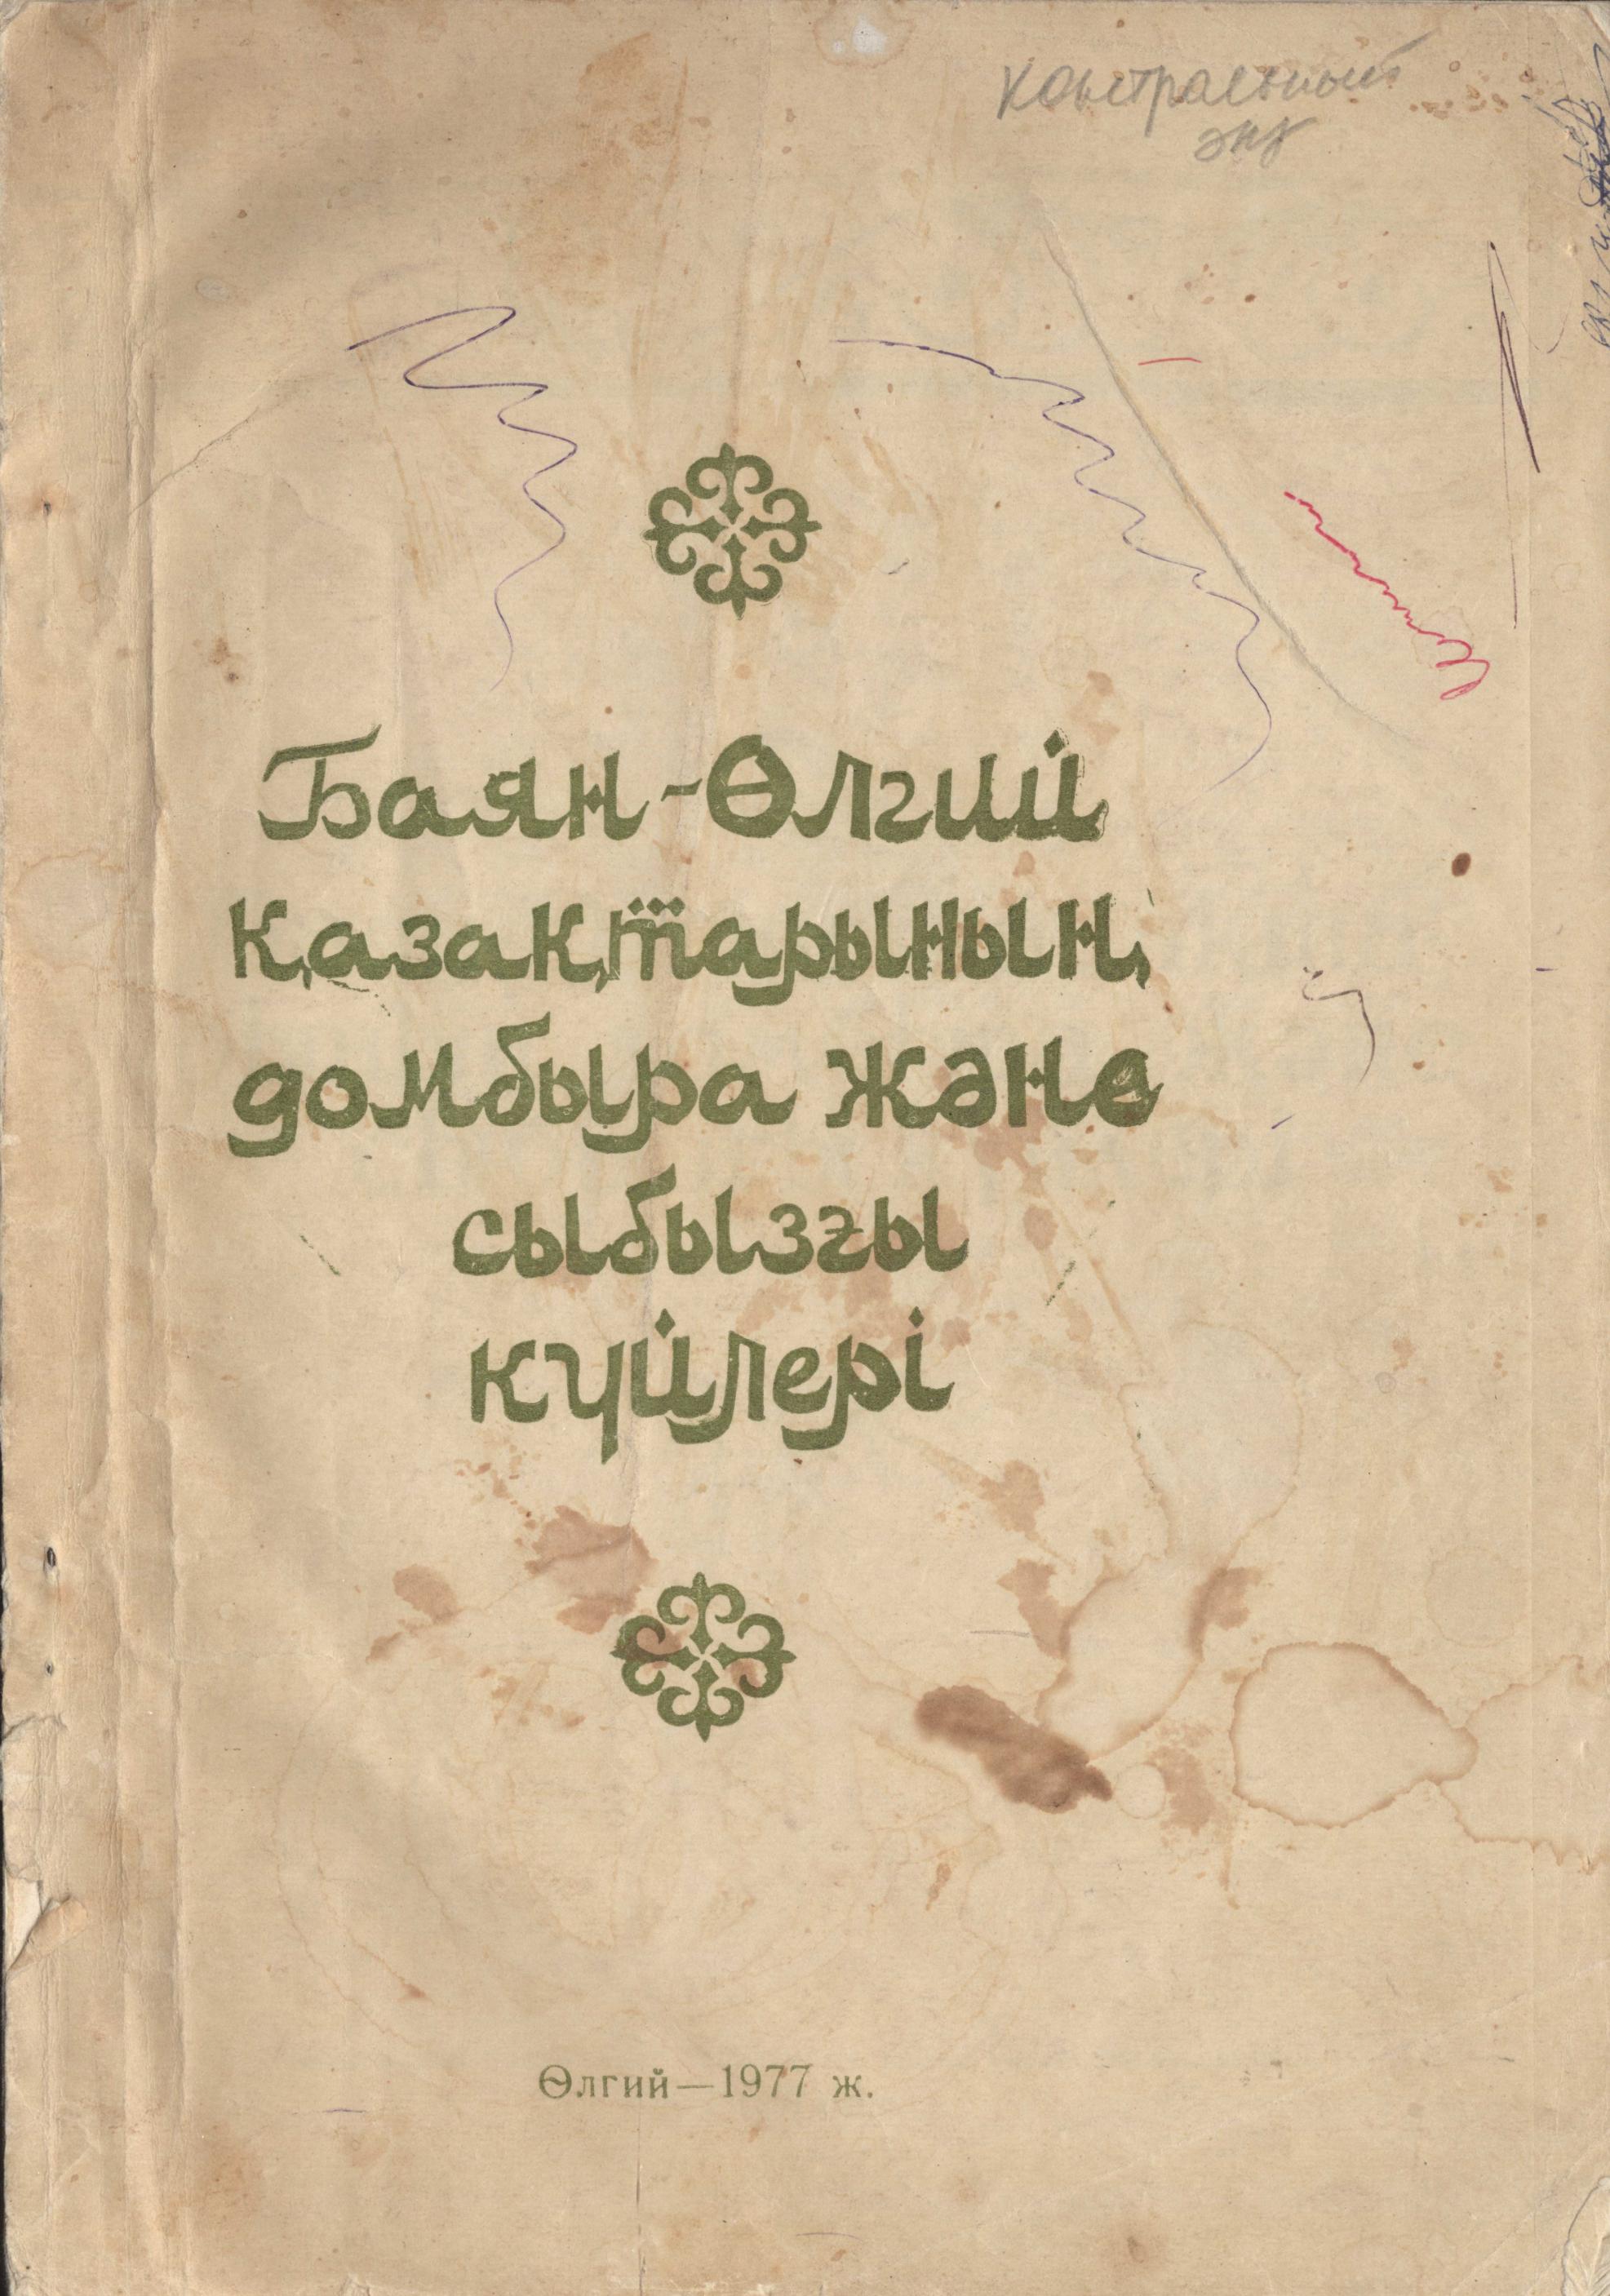 контрастный
Баян-Өлгий
қазақтарының
домбыра және
сыбызғы
күйлері
Өлгий—1977 ж.